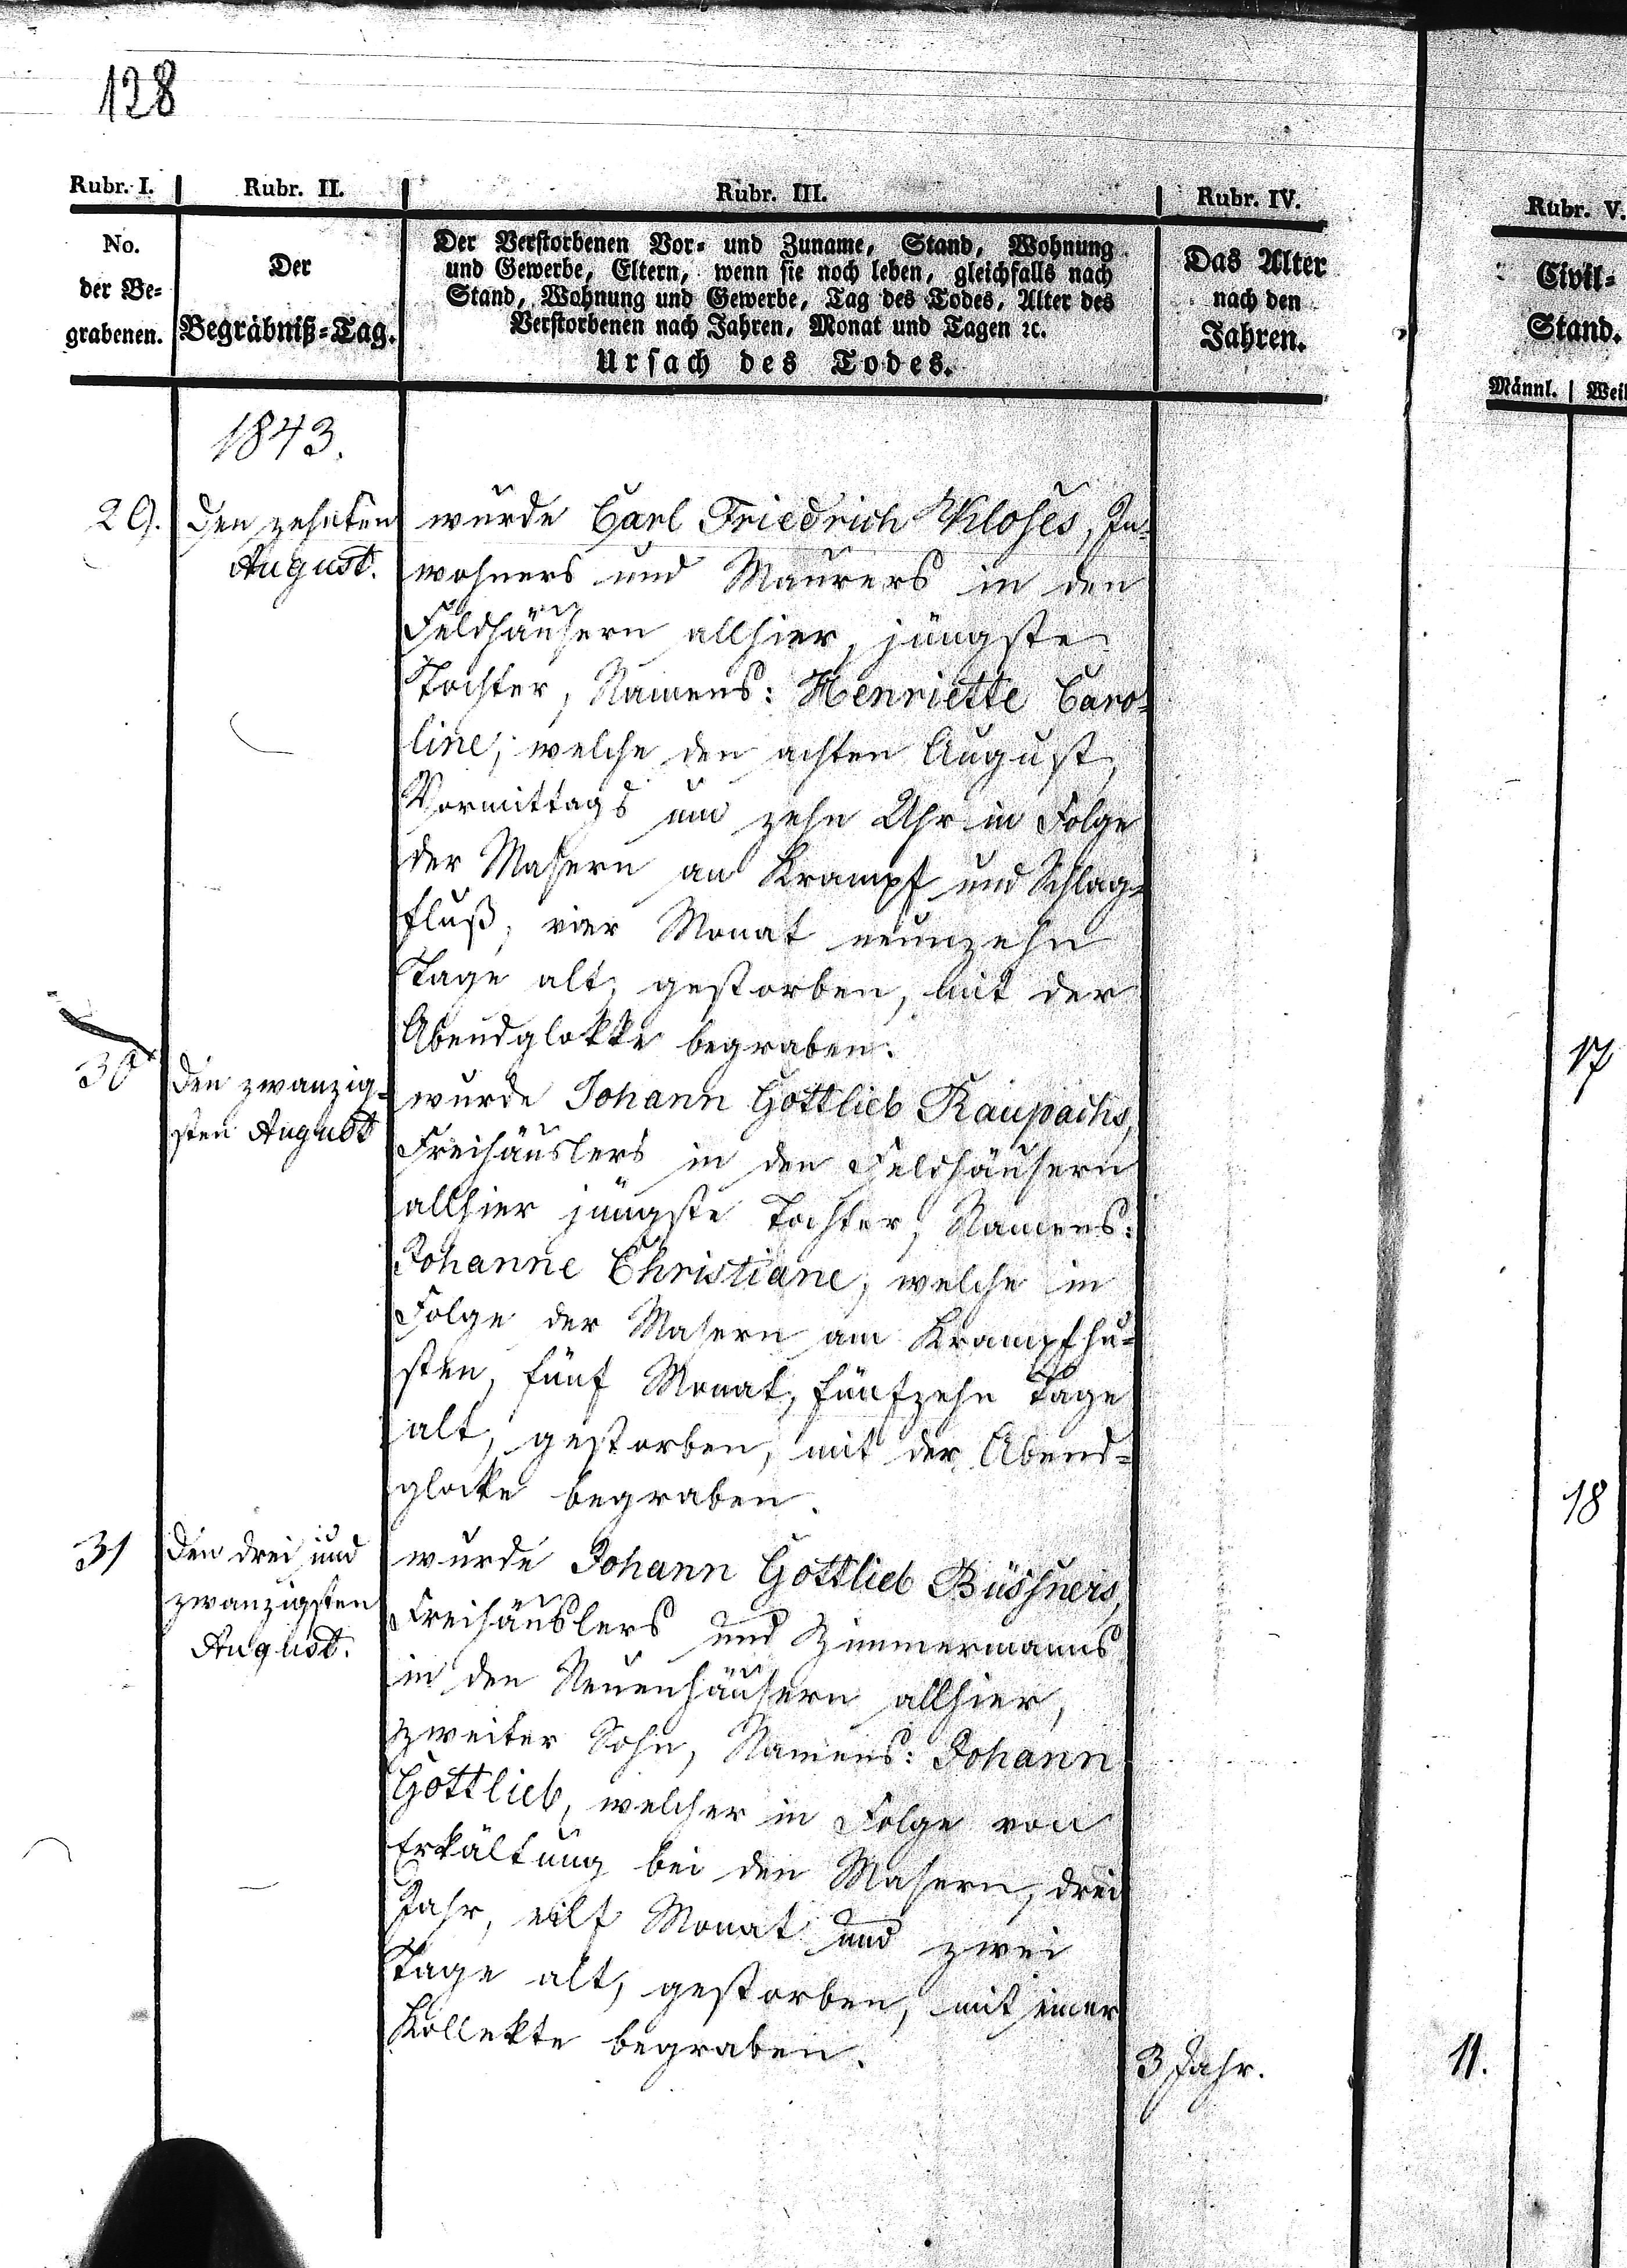 128
Rubr. I. Rubr. II. Rubr. III. Rubr. IV. Rubr. V.
No.
der Be-
grabenen.
Der
Begräbniß-Tag.
Der Verstorbenen Vor- und Zuname, Stand, Wohnung
und Gewerbe, Eltern, wenn sie noch leben, gleichfalls nach
Stand, Wohnung und Gewerbe, Tag des Todes, Alter des
Verstorbenen nach Jahren, Monat und Tagen ꝛc.
Ursach des Todes.
Das Alter
nach den
Jahren.
Civil-
Stand.
Männl. | Weibl
1843.
29.
den zehnten
August.
wurde Carl Friedrich Kloses, In-
wohners und Maurers in den
Feldhäusern allhier, jüngste
Tochter, Namens: Henriette Caro-
line, welche den achten August,
Vormittags um zehn Uhr in Folge
der Masern an Krampf und Schlag-
fluß, vier Monat neunzehn
Tage alt, gestorben, mit der
Abendglokke begraben.
17
30
den zwanzig-
sten August
wurde Johann Gottlieb Raupachs,
Freihäuslers in den Feldhäusern
allhier jüngste Tochter, Namens:
Johanne Christiane, welche in
Folge der Masern am Krampfhu-
sten, fünf Monat, fünfzehn Tage
alt, gestorben, mit der Abend-
glocke begraben.
18
31
den drei und
zwanzigsten
August.
wurde Johann Gottlieb Büssners,
Freihäuslers und Zimmermanns
in den Neuenhäusern allhier,
zweiter Sohn, Namens: Johann
Gottlieb, welcher in Folge von
Erkältung bei den Masern, drei
Jahr, eilf Monat und zwei
Tage alt, gestorben, mit einer
Kollekte begraben.
3 Jahr.
11.